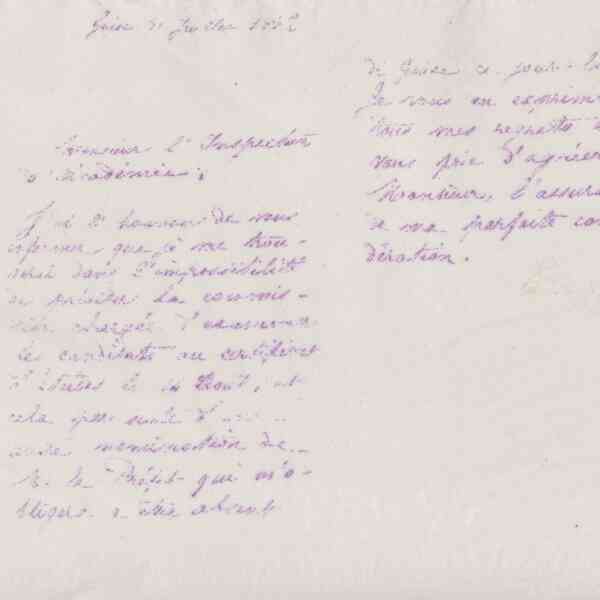 Guise
Monsieur l'Inspection
d'Académie.
J'ai l'honneur de vous
informer que je me trou-
verai dans l'impossibilité
de présider la commis-
sion chargée d'examiner
les candidats au certificat
d'études le Août, et
cela par suite d'
nomination de
M. le Préfet qui m'o-
bligera à être absent
de Guise ce jour-là
Je vous en exprim
tous mes regrets
vous prie d'agréer
Monsieur, l'assura
de ma parfaite con
dération.